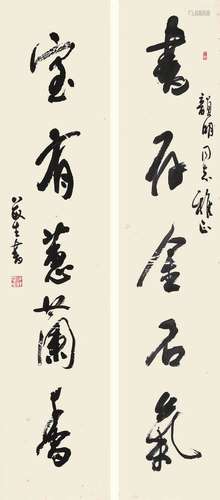 韻明同志雅正
書存金石氣
室有蕙蘭香
蕺生書